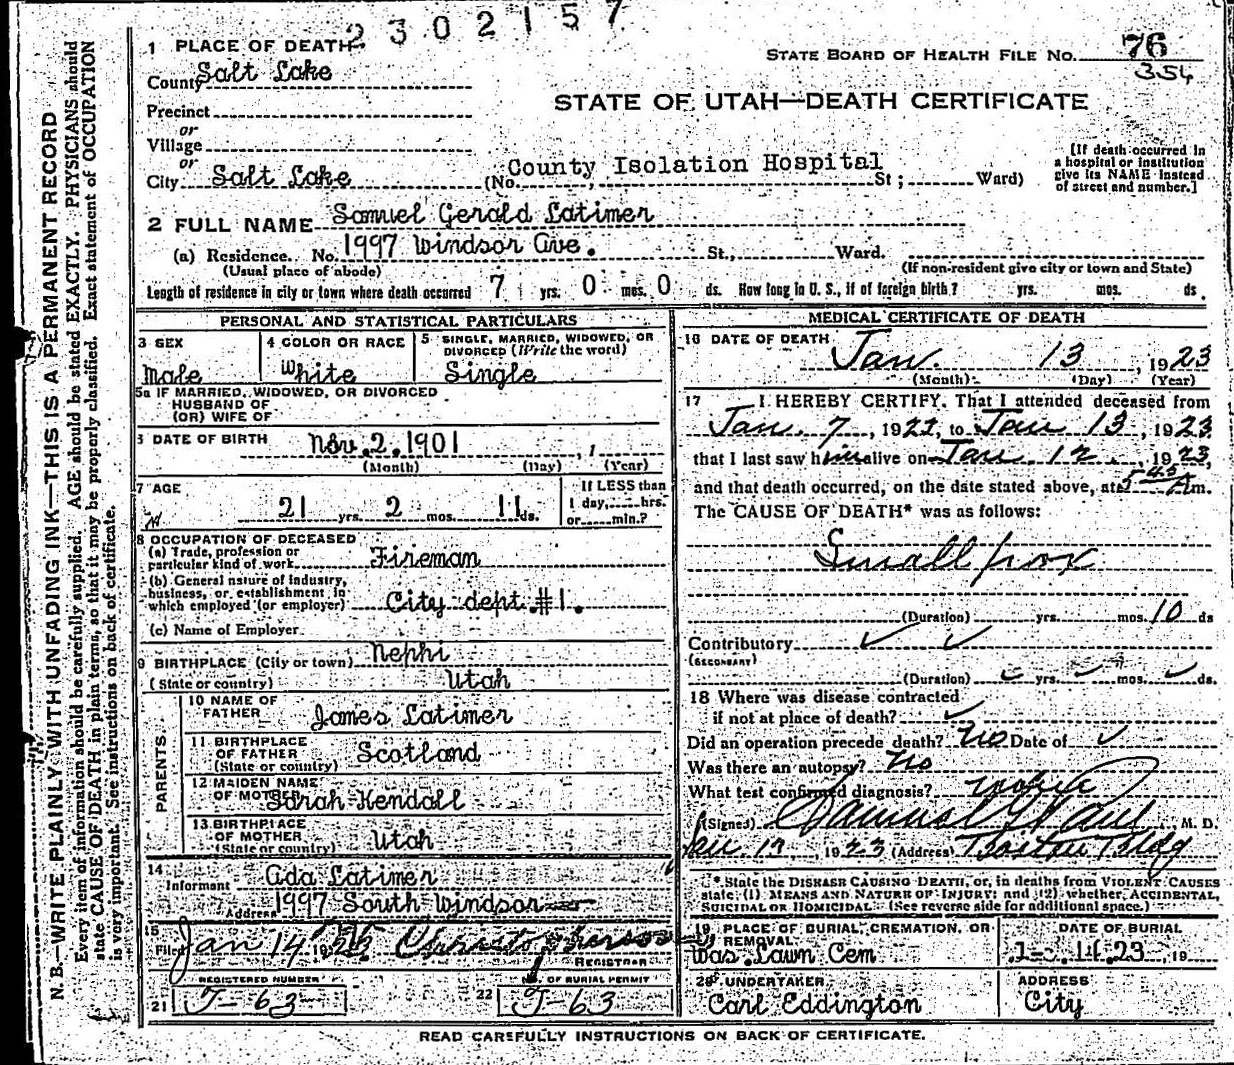 2302157
1 PLACE OF DEATH
STATE BOARD OF HEALTH FILE NO. 76
354
County Salt Lake
STATE OF UTAH—DEATH CERTIFICATE
Precinct
or
Village
or
City Salt Lake (No. County Isolation Hospital St; Ward)
[If death occurred in a hospital or institution give its NAME instead of street and number.]
2 FULL NAME Samuel Gerald Latimer
(a) Residence. No. 1997 Windsor Ave. St., Ward.
(Usual place of abode) (If non-resident give city or town and State)
Length of residence in city or town where death occurred 7 yrs. 0 mos. 0 ds. How long in U. S., if of foreign birth? yrs. mos. ds.
PERSONAL AND STATISTICAL PARTICULARS
3 SEX Male
4 COLOR OR RACE White
5 SINGLE, MARRIED, WIDOWED, OR DIVORCED (Write the word) Single
5a IF MARRIED, WIDOWED, OR DIVORCED
HUSBAND OF
(OR) WIFE OF
6 DATE OF BIRTH Nov. 2. 1901
(Month) (Day) (Year)
7 AGE 21 yrs. 2 mos. 11 ds.
If LESS than 1 day, hrs. or min.?
8 OCCUPATION OF DECEASED
(a) Trade, profession or particular kind of work Fireman
(b) General nature of industry, business, or establishment in which employed (or employer) City dept. #1.
(c) Name of Employer
9 BIRTHPLACE (City or town) Nephi
(State or country) Utah
PARENTS
10 NAME OF FATHER James Latimer
11 BIRTHPLACE OF FATHER (State or country) Scotland
12 MAIDEN NAME OF MOTHER Sarah Kendall
13 BIRTHPLACE OF MOTHER (State or country) Utah
14 Informant Ada Latimer
Address 1997 South Windsor
15 Filed Jan 14 1923
REGISTRAR
REGISTERED NUMBER
21 J-63
NO. OF BURIAL PERMIT
22 J-63
MEDICAL CERTIFICATE OF DEATH
16 DATE OF DEATH
Jan. 13, 1923
(Month) (Day) (Year)
17 I HEREBY CERTIFY, That I attended deceased from
Jan. 7, 1922, to Jan 13, 1923
that I last saw him alive on Jan 12, 1923,
and that death occurred, on the date stated above, at 5 45 A m.
The CAUSE OF DEATH* was as follows:
Small pox
(Duration) yrs. mos. 10 ds
Contributory
(SECONDARY)
(Duration) yrs. mos. ds.
18 Where was disease contracted
if not at place of death?
Did an operation precede death? No Date of
Was there an autopsy? No
What test confirmed diagnosis?
(Signed) M. D.
Jan. 13, 1923 (Address) Boston Bldg
* State the DISEASE CAUSING DEATH, or, in deaths from VIOLENT CAUSES
state (1) MEANS AND NATURE OF INJURY; and (2) whether ACCIDENTAL,
SUICIDAL OR HOMICIDAL. (See reverse side for additional space.)
19 PLACE OF BURIAL, CREMATION, OR REMOVAL
Was. Lawn Cem
DATE OF BURIAL
1-14.23, 19
20 UNDERTAKER
Carl Eddington
ADDRESS
City
READ CAREFULLY INSTRUCTIONS ON BACK OF CERTIFICATE.
N. B.—WRITE PLAINLY, WITH UNFADING INK—THIS IS A PERMANENT RECORD
Every item of information should be carefully supplied. AGE should be stated EXACTLY. PHYSICIANS should
state CAUSE OF DEATH in plain terms, so that it may be properly classified. Exact statement of OCCUPATION
is very important. See instructions on back of certificate.